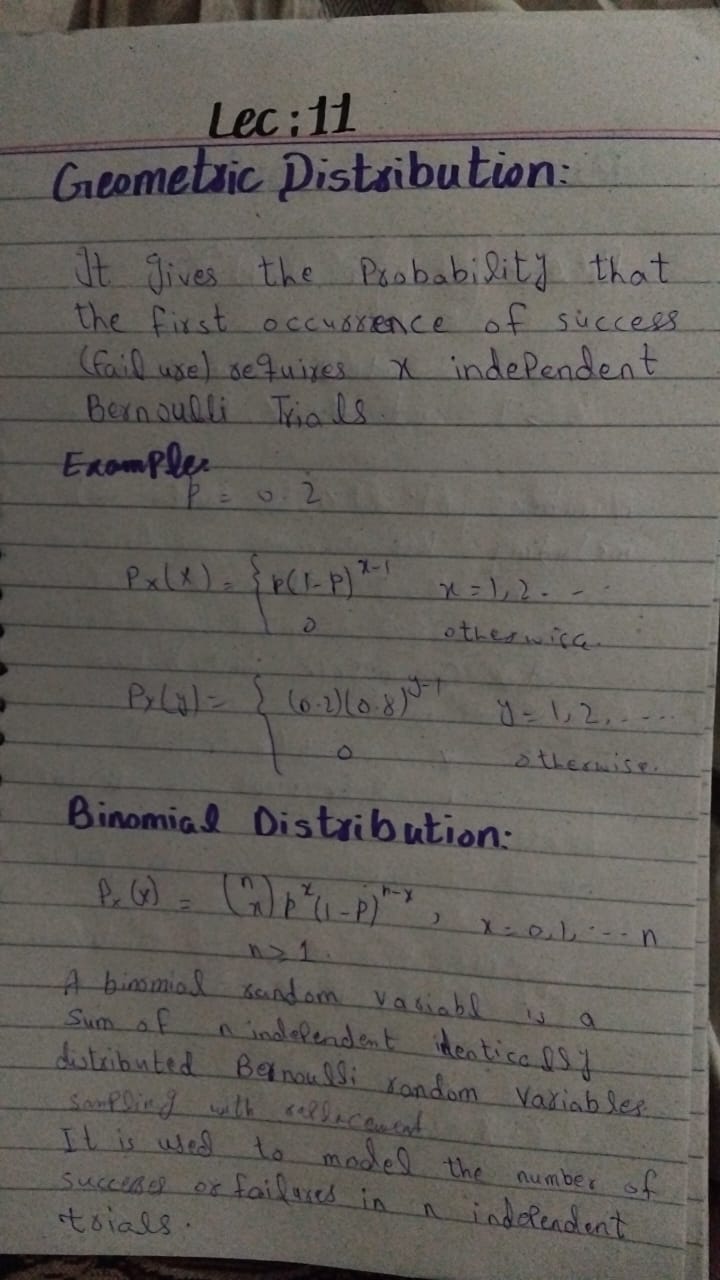 Lec:11
Geometric Distribution:
It gives the Probability that
the first occurrence of success
(failure) requires x independent
Bernoulli Trials.
Example:
p = 0.2
Px(x) = { p(1-p)^x-1 x = 1,2. - -
0 otherwise.
Py(y) = { (0.2)(0.8)^y-1 y = 1,2,.....
0 otherwise.
Binomial Distribution:
Px(x) = (n x) p^x(1-p)^n-x, x = 0,1,...n
n≥1.
A binomial random variabl is a
Sum of n independent identically
distributed Bernoulli random variables
sampling with replacement
It is used to model the number of
successes or failures in n independent
trials.